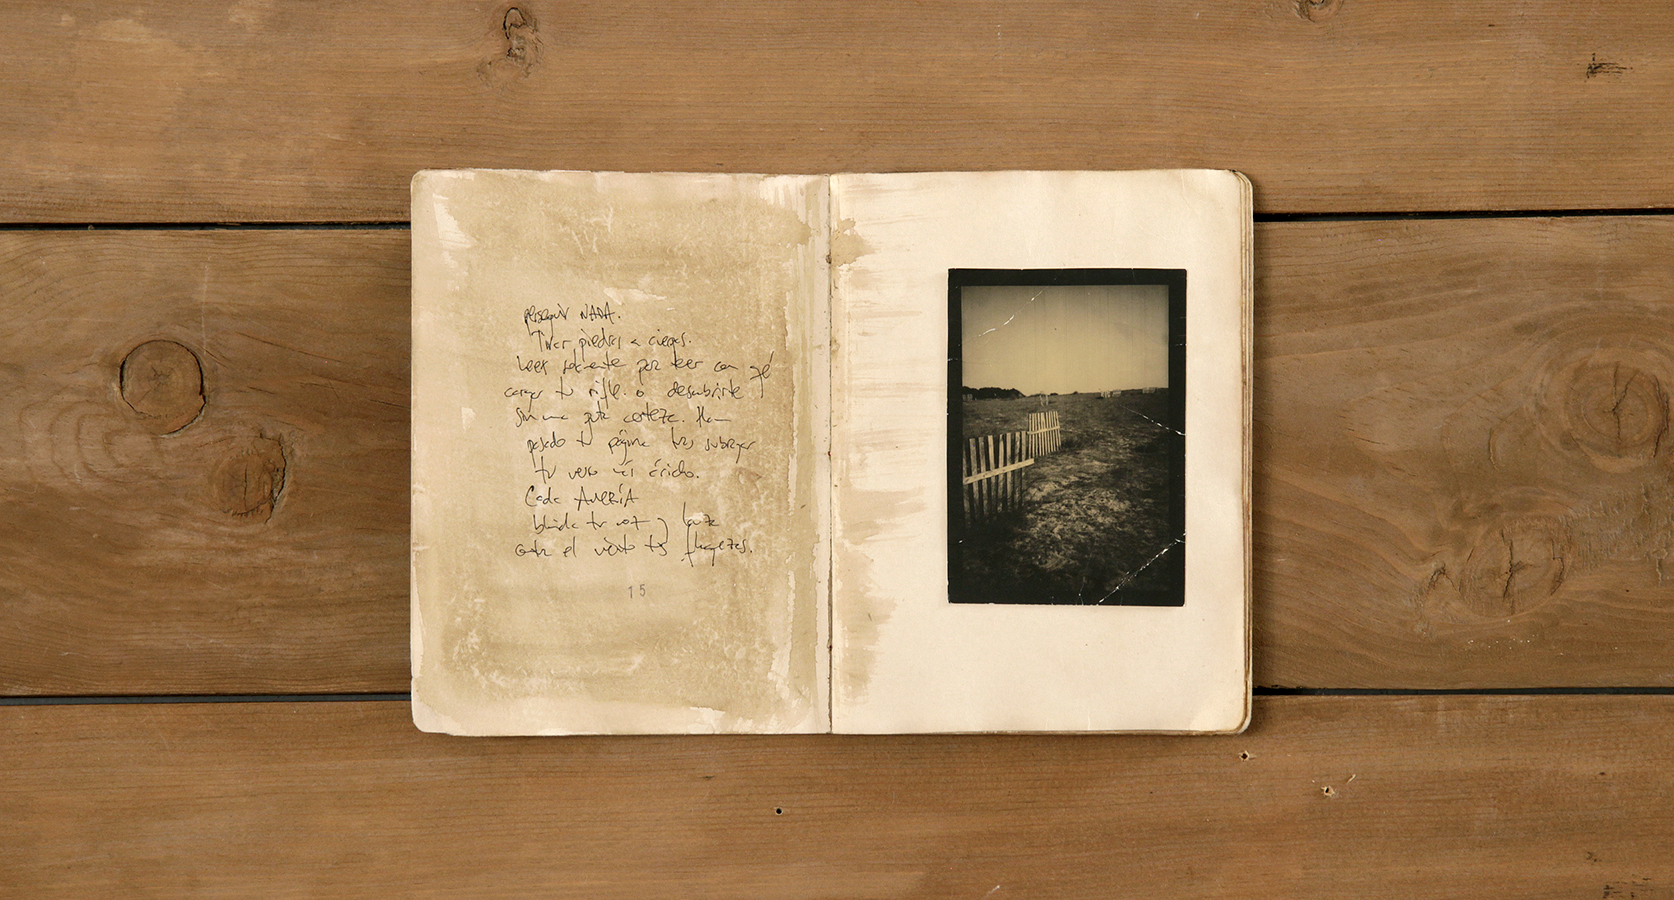 perseguir NADA.
Tirar piedras a ciegas.
Leer solamente por leer con qué
cargar tu rifle. o descubrirte
sin una puta corteza. Han
pasado tu página tras subrayar
tu verso más árido.
Cada AVERÍA
blinda tu voz y lanza
contra el viento tus flaquezas.
15